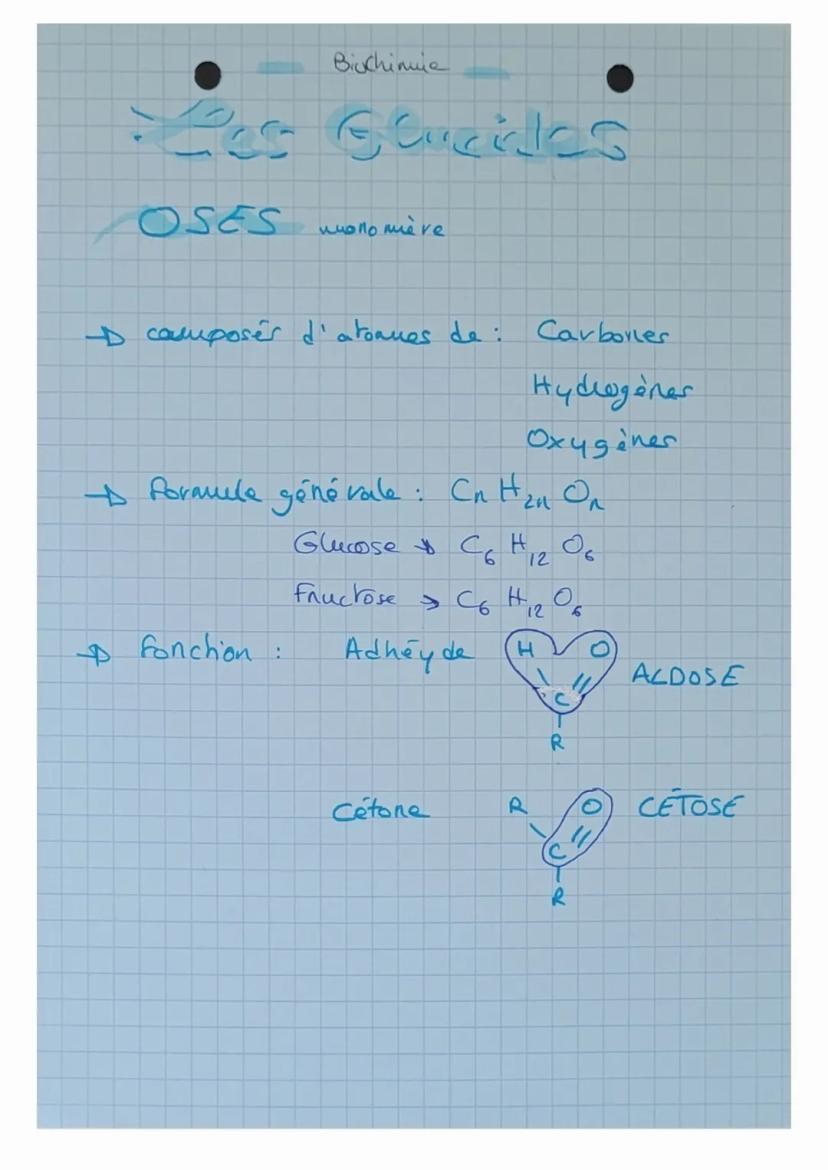 Biochimie
Les Glucides
OSES monomère
→ composés d'atomes de : Carbones
Hydrogènes
Oxygènes
→ formule générale : Cn H2n On
Glucose → C6 H12 O6
Fructose → C6 H12 O6
→ fonction : Adhéyde H O ALDOSE
C
R
Cétone R O CÉTOSE
C
R